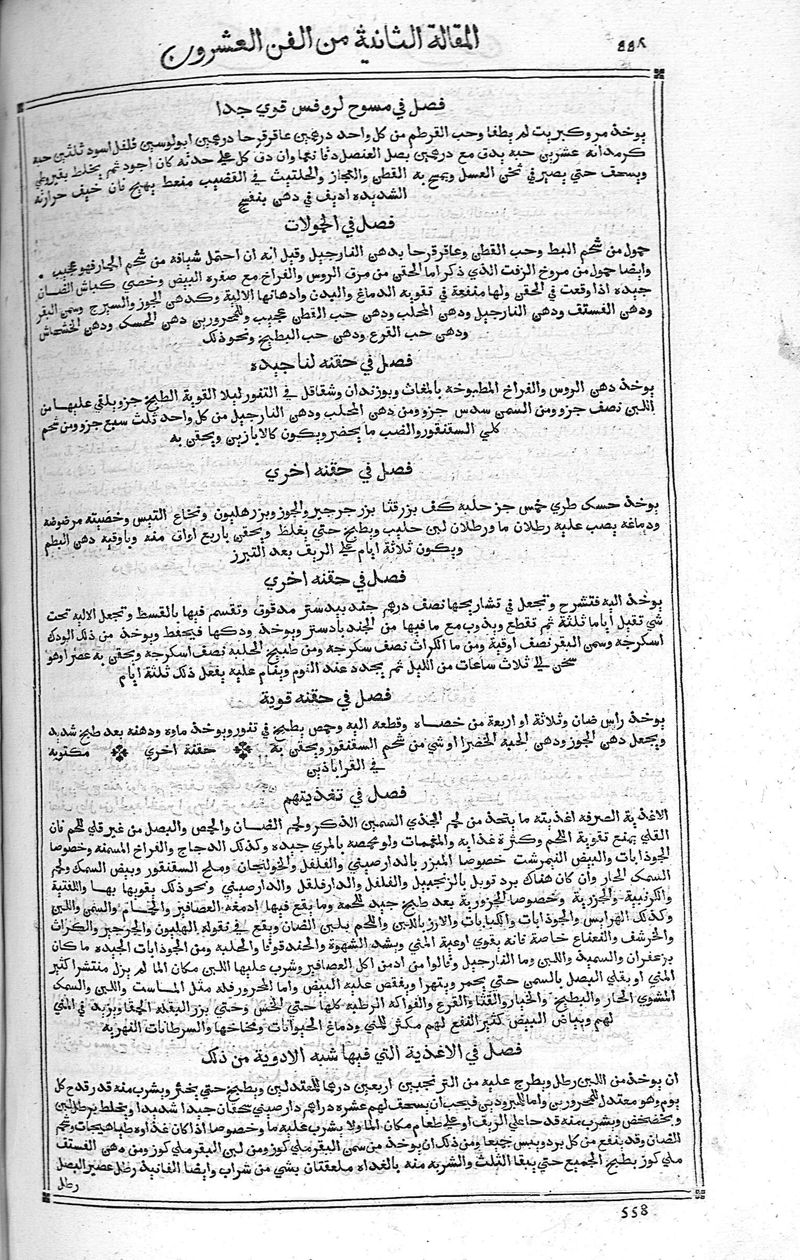 ٥٥٨ المقالة الثانية من الفن العشرون
فصل في مسوح لروفس قوي جدا
يوخذ مر وكبريت لم يطفا وحب القرطم من كل واحد درهمين عاقرقرحا درهمين ابولوسين فلفل اسود ثلثين حبه
كرمدانه عشرين حبه يدق مع درهمين بصل العنصل دقا ناعما وان دق كل على حدته كان اجود ثم يخلط بقيروطي
ويسحف حتي يصير في ثخن العسل ويمسح به القطن والعجاز والحلتيت في القضيب منعظ يهيج فان خيف حرارته
الشديده اديف في دهن بنفسج
فصل في الحمولات
حمول من شحم البط وحب القطن وعاقرقرحا بدهن النارجيل وقيل انه ان احتمل شيافه من شحم الحمار فهو عجيب
وايضا حمول من مروخ الزفت الذي ذكر اما الحقن من مرق الروس والفراخ مع صفره البيض وخصي كباش الضان
جيده اذا وقعت في الحقن ولها منفعة في تقويه الدماغ والبدن وادهانها الالية وكدهن الجوز والسيرج وسمن البقر
ودهن الفستف ودهن النارجيل ودهن المحلب ودهن حب القطن عجيب وللمحرورين دهن الحسك ودهن الخشخاش
ودهن حب القرع ودهن حب البطيخ ونحو ذلك
فصل في حقنه لنا جيده
يوخذ دهن الروس والفراخ المطبوخة بالمغاث وبوزندان وشقاقل في التنور ليلا القوية الطبخ جزو يلقي عليها من
اللبن نصف جزو ومن السمن سدس جزو ومن دهن المحلب ودهن النارجيل من كل واحد ثلث سبع جزو ومن شحم
كلي السقنقور والضب ما يحضر ويكون كالابازين ويحقن به
فصل في حقنه اخري
يوخذ حسك طري خمس جز حلبه كف بزر قثا بزر جرجير والجوز وبزر هليون ونخاع التيس وخصيته مرضوضه
ودماغه يصب عليه رطلان ما ورطلان لبن حليب ويطبخ حتي يغلظ ويحقن باربع اواق منه وباوقيه دهن البطم
ويكون ثلاثة ايام على الريف بعد التبرز
فصل في حقنه اخري
يوخذ اليه فتشرح وتجعل في تشاريحها نصف درهم جندبيدستر مدقوق وتقسم فيها بالقسط وتجعل الاليه تحت
شي ثقيل اياما ثلثة ثم تقطع ويذوب مع ما فيها من الجندبادستر ويوخذ ودكها فيحفظ ويوخذ من ذلك الودك
اسكرجه وسمن البقر نصف اوقية ومن ما الكراث نصف سكرجه ومن طبيخ الحلبه نصف اسكرجه ويحقن به عصرا وهو
سخن الي ثلاث ساعات من الليل ثم يجدد عند النوم وينام عليه يفعل ذلك ثلثة ايام
فصل في حقنه قوية
يوخذ راس ضان وثلاثة او اربعة من خصاه وقطعه اليه وحمص يطبخ في تنور ويوخذ ماوه ودهنه بعد طبخ شديد
ويجعل دهن الجوز ودهن الحبه الخضرا او شي من شحم السقنقور ويحقن به حقنة اخري مكتوبه
في القراباذين
فصل في تغذيتهم
الاغذية الصرفه اغذيته ما يتخذ من لحم الجذي السمين الذكر ولحم الضان والحمص والبصل من غير قلي للحم فان
القلي يمنع تقوية اللحم وكثرة غذايه والمغمومات ولو محمصه بالمري جيده وكذلك الدجاج والفراخ المسمنه وخصوصا
الجوذابات والبيض النيمرشت خصوصا المبزر بالدارصيني والفلفل والخولنجان وملح السقنقور وبيض السمك ولحم
السمك الحار وان كان هناك برد توبل بالزنجبيل والفلفل والدارفلفل والدارصيني ونحو ذلك يقويها بها واللفتية
والكرنبية والجزرية وخصوصا الجزورية بعد طبخ جيد للحمة وما يقع فيها ادمغه العصافير والحمام والسمن واللبن
وكذلك الهرايس والجوذابات والكبابات والارز باللبن واللحم بلبن الضان ويقع في نقوله الهليون والجرجير والكراث
والخرشف والنعناع خاصة فانه يقوي اوعية المني ويشد الشهوة والحندقوقا والحلبه ومن الجوذابات الجيده ما كان
بزعفران والسمية واللبن وما النارجيل وقالوا من ادمن اكل العصافير وشرب عليها اللبن مكان الما لم يزل منتشرا كثير
المني او بقلي البصل بالسمن حتي يحمر ويتهرا ويفقص عليه البيض واما المحرور فله مثل الماست واللبن والسمك
المشوي الحار والبطيخ والخيار والقثا والقرع والفواكه الرطبه كلها حتي الخس وحتي بزر البقله الحمقا ويزيد في المني
لهم وبياض البيض كثير النفع لهم مكثر للمني ودماغ الحيوانات ومخاخها والسرطانات النهريه
فصل في الاغذية التي فيها شبه الادوية من ذلك
ان يوخذ من اللبن رطل ويطرح عليه من الترنجبين اربعين درهما للمعتدلين ويطبخ حتي يخثر ويشرب منه قدر قدح كل
يوم وهو معتدل للمحرورين واما للمبرودين فيجب ان يسحف لهم عشره دراهم دارصيني كتان جيدا شديدا ويخلط برطل لبن
ويخضخض ويشرب منه قدحا علي الريف او علي طعام مكان الما ولا يشرب عليه ما وخصوصا اذا كان غذاوه طباهيجات وشحم
الضان وقد ينفع من كل برد ويبس جميعا ومن ذلك ان يوخذ من سمن البقر ملي كوز ومن لبن البقر ملي كوز ومن دهن الفستف
ملي كوز يطبخ الجميع حتي يبقا الثلث والشربه منه بالغداه ملعقتان بشي من شراب وايضا الفانيذ رطل عصير البصل
رطل
558